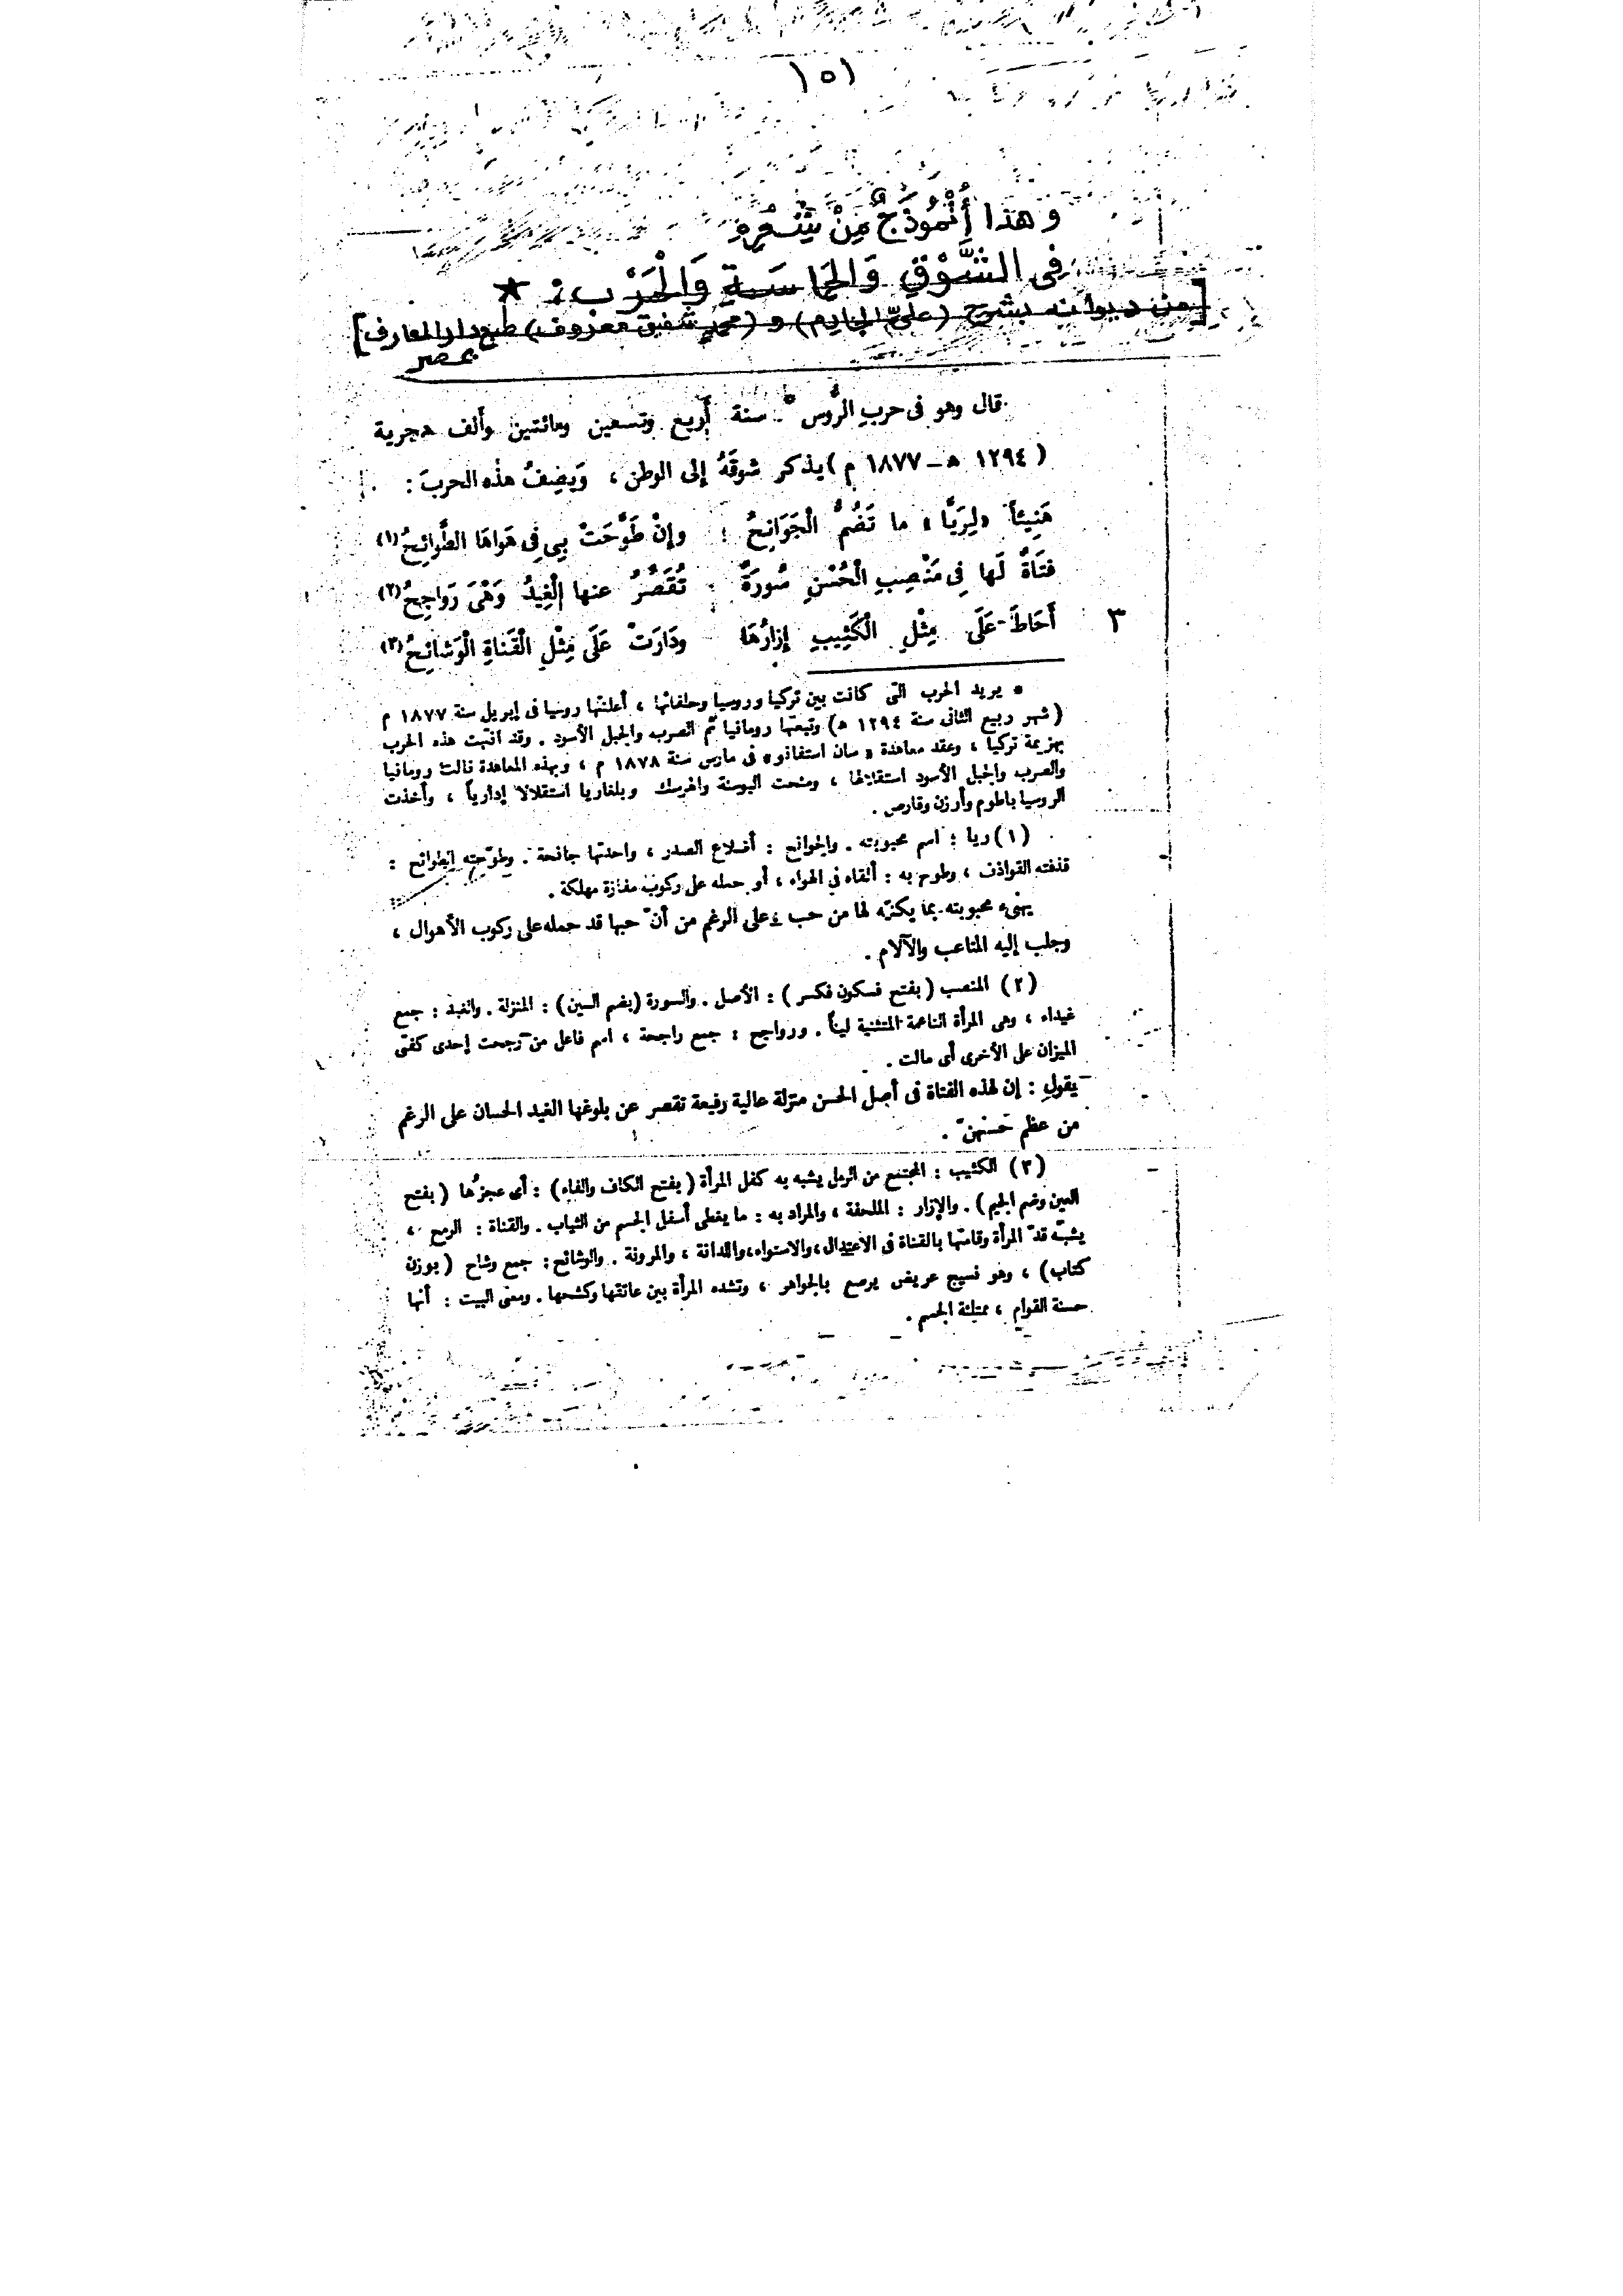 ١٥١
وهذا أُنْمُوذَجٌ مِنْ شِعْرِهِ
فى الشَّوْقِ وَالحَمَاسَةِ وَالْحَرْبِ : *
[من ديوانه بشرح (علىّ الجارم) و (محمد شفيق معروف) طبع دار المعارف]
بمصر
قال وهو فى حربِ الرُّوس * سنة أَربع وتسعين ومائتين وألف هجرية
( ١٢٩٤ هـ – ١٨٧٧ م ) يذكر شوقَهُ إلى الوطن ، وَيَصِفُ هذه الحربَ :
هَنِيئاً «لِرَيَّا» ما تَضُمُّ الْجَوَانِحُ وإِنْ طَوَّحَتْ بِى فِى هَوَاهَا الطَّوَائِحُ (١)
فَتَاةٌ لَها فِى مَنْصِبِ الْحُسْنِ سُورَةٌ تُقَصِّرُ عنها الْغِيدُ وَهْىَ رَوَاجِحُ (٢)
٣ أَحَاطَ عَلَى مِثْلِ الْكَثِيبِ إِزَارُهَا ودَارَتْ عَلَى مِثْلِ الْقَنَاةِ الْوَشَائِحُ (٣)
* يريد الحرب التى كانت بين تركيا وروسيا وحلفائها ، أعلنتها روسيا فى إبريل سنة ١٨٧٧ م
( شهر ربيع الثانى سنة ١٢٩٤ هـ) وتبعتها رومانيا ثم الصرب والجبل الأسود . وقد انتهت هذه الحرب
بهزيمة تركيا ، وعقد معاهدة « سان استفانو » فى مارس سنة ١٨٧٨ م ، وبهذه المعاهدة نالت رومانيا
والصرب والجبل الأسود استقلالها ، ومنحت البوسنة والهرسك وبلغاريا استقلالا إدارياً ، وأخذت
الروسيا باطوم وأرزن وقارص .
(١) ريا : اسم محبوبته . والجوانح : أضلاع الصدر ، واحدتها جانحة . وطوّحته الطوائح :
قذفته القواذف ، وطوح به : ألقاه فى الهواء ، أو حمله على ركوب مفازة مهلكة .
يهنىء محبوبته بما يكنّه لها من حب ، على الرغم من أنّ حبها قد حمله على ركوب الأهوال ،
وجلب إليه المتاعب والآلام .
(٢) المنصب ( بفتح فسكون فكسر ) : الأصل . والسورة (بضم السين) : المنزلة . والغيد : جمع
غيداء ، وهى المرأة الناعمة المتثنية ليناً . ورواجح : جمع راجحة ، اسم فاعل من رجحت إحدى كفتى
الميزان على الأخرى أى مالت .
يقول : إن لهذه الفتاة فى أصل الحسن منزلة عالية رفيعة تقصر عن بلوغها الغيد الحسان على الرغم
من عظم حسنهنّ .
(٣) الكثيب : المجتمع من الرمل يشبه به كفل المرأة ( بفتح الكاف والفاء) : أى عجزُها ( بفتح
العين وضم الجيم ) . والإزار : الملحفة ، والمراد به : ما يغطى أسفل الجسم من الثياب . والقناة : الرمح ،
يشبّه قدّ المرأة وقامتها بالقناة فى الاعتدال ، والاستواء ، واللدانة ، والمرونة . والوشائح : جمع وشاح ( بوزن
كتاب) ، وهو نسيج عريض يرصع بالجواهر ، وتشده المرأة بين عاتقها وكشحها . ومعنى البيت : أنها
حسنة القوام ، ممتلئة الجسم .